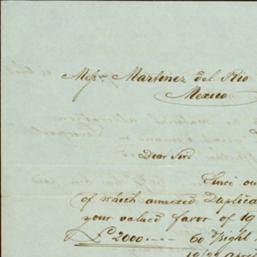 Mess. Martinez del Rio
Mexico
Dear Sirs
Since our
of which annexed Duplica
your valued favor of 10
£ 2000.-.- 60 Sight